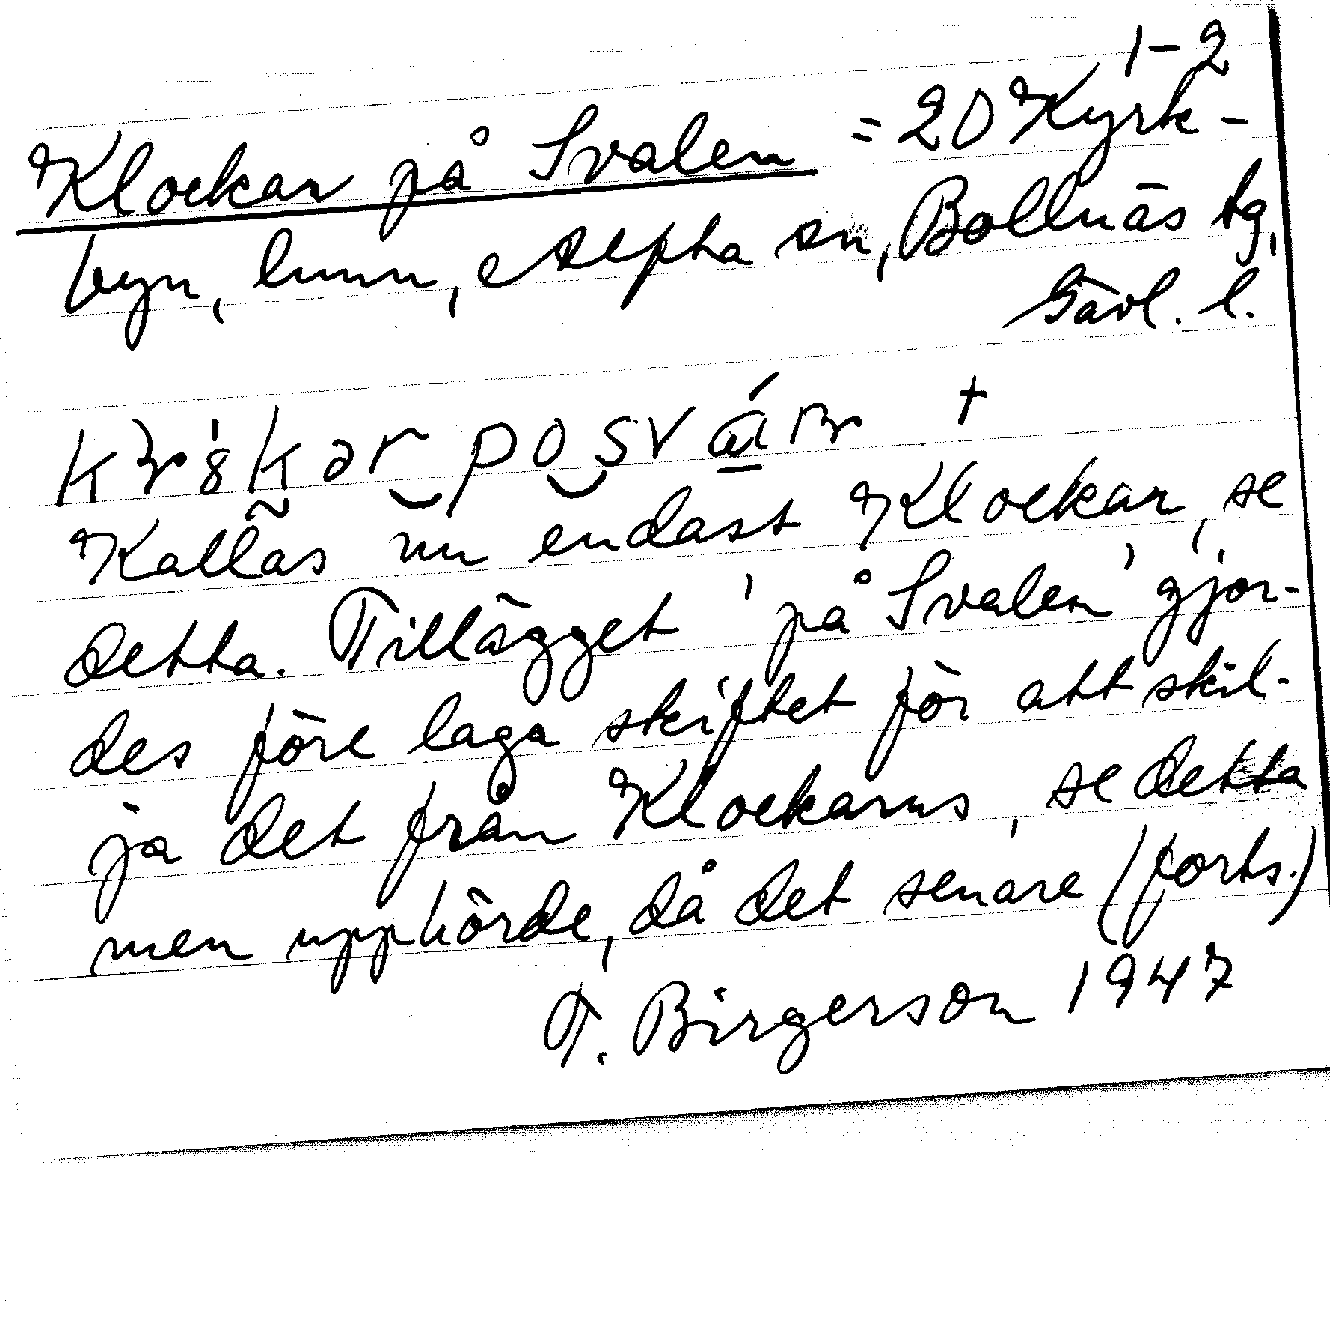 1-2
Klockar på Svalen = 20 Kyrk-
byn, lunn, Alfta sn, Bollnäs tg,
Gävl. l.
Kallas nu endast Klockar, se
detta. Tillägget 'på Svalen' gjor-
des före laga skiftet för att skil-
ja det från Klockarns, se detta
men upphörde, då det senare (forts.)
T. Birgerson 1947